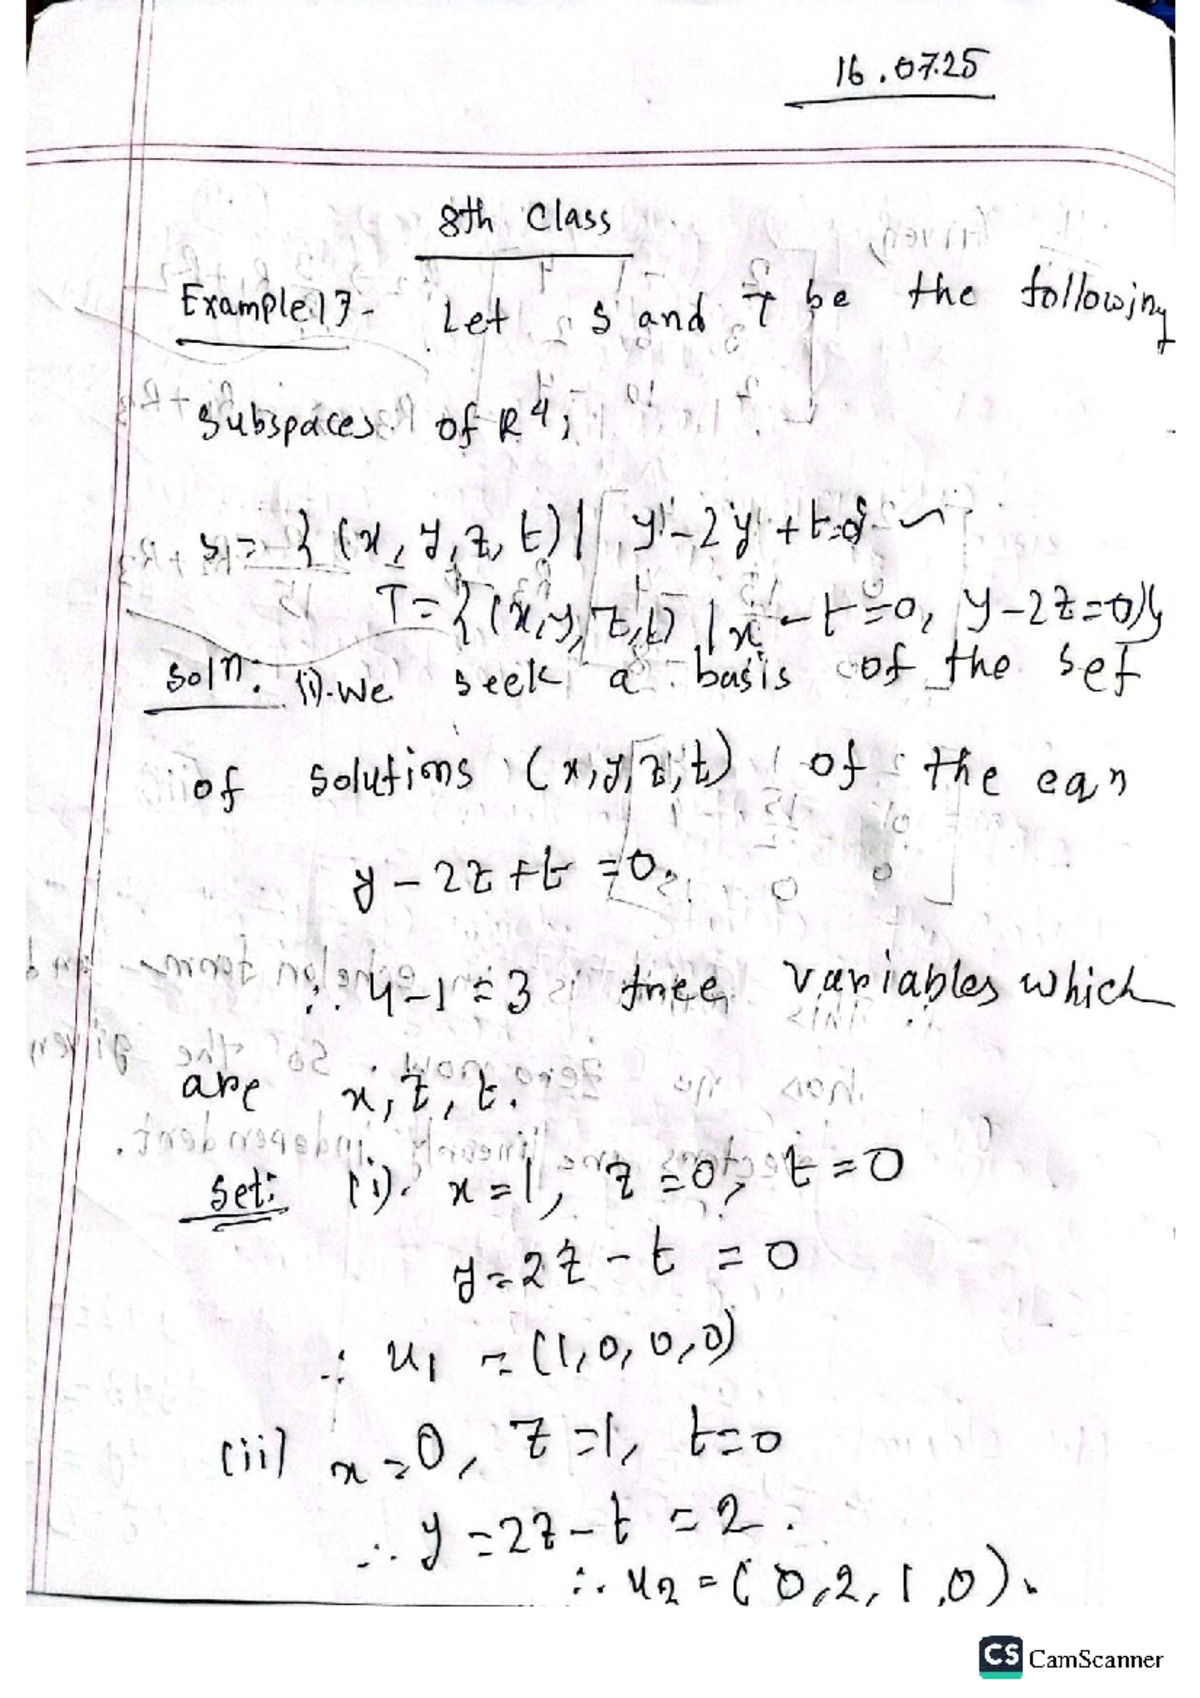 16.07.25
8th Class
Example 17- Let S and T be the following
subspaces of R⁴;
S = { (x, y, z, t) | y - 2y + t=0}
T = { (x, y, z, t) | x - t = 0, y - 2z = 0)}
Soln: (i). We seek a basis of the set
of solutions (x, y, z, t) of the eqn
y - 2z + t = 0.
∴ 4-1 = 3 free variables which
are x, z, t.
Set: (i). x = 1, z = 0, t = 0
y = 2z - t = 0
∴ u₁ = (1, 0, 0, 0)
(ii) x = 0, z = 1, t = 0
∴ y = 2z - t = 2.
∴ u₂ = (0, 2, 1, 0).
CS CamScanner